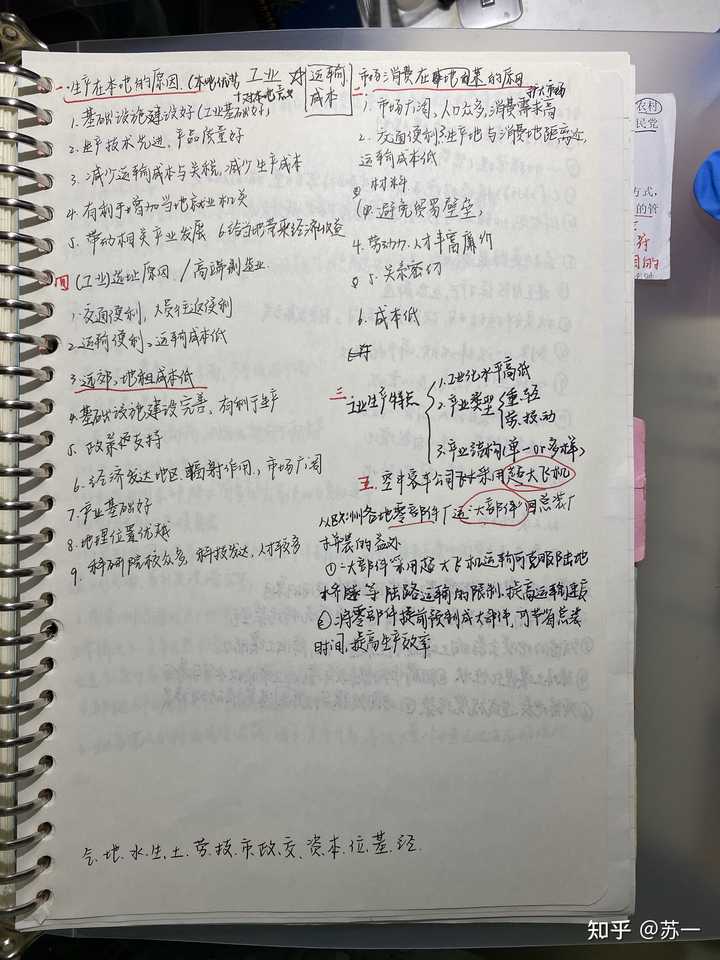 一、生产在本地的原因.(本地优势
+对本地意义
工业 对 运输
成本
1. 基础设施建设好(工业基础好)
2. 生产技术先进、产品质量好
3. 减少运输成本与关税,减少生产成本
4. 有利于增加当地就业机关
5. 带动相关产业发展 6.给当地带来经济收益
四 (工业)选址原因 / 高端制造业.
1. 交通便利,人员往返便利
2. 运输便利、运输成本低
3. 远郊,地租成本低
4. 基础设施建设完善,有利于生产
5. 政策支持
6. 经济发达地区.辐射作用,市场广阔
7. 产业基础好
8. 地理位置优越
9. 科研院校众多,科技发达,人才较多
二、市场消费在 的原因
扩大市场
1. 市场广阔,人口众多,消费需求高
2. 交通便利:生产地与消费地距离近,
运输成本低
材料
避免贸易壁垒,
4. 劳动力.人才丰富廉价
5. 关系密切
6. 成本低
三 工业生产特点
1. 工业化水平高低
2. 产业类型 重.轻
劳.技.动
3. 产业结构(单一or多样)
五. 空中客车公司 采用超大飞机
从欧洲各地零部件厂运“大部件”回总装厂
拼装的益处
①:大部件采用超大飞机运输可克服陆地
桥隧等陆路运输的限制.提高运输速度
②:将零部件提前预制成大部件,可节省总装
时间,提高生产效率
气.地.水.生.土.劳.技.市.政.交.资.本.位.基.经.
农村
民党
方式,
的管
的
知乎 @苏一